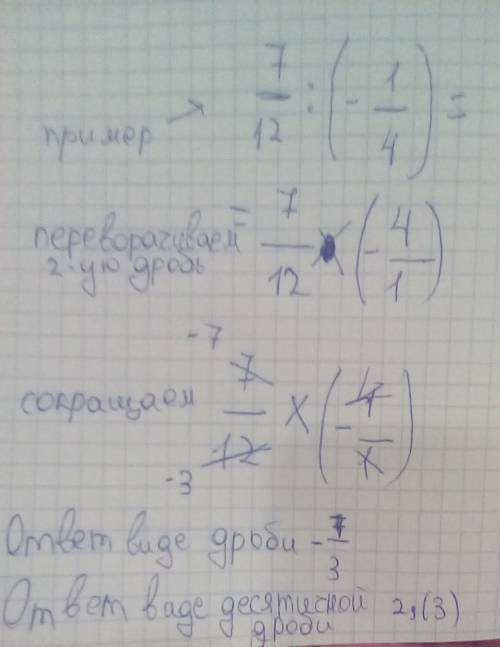 пример → 7/12 : (- 1/4) =
переворачиваем 2-ую дробь = 7/12 × (- 4/1)
сокращаем -7 7/12 -3 × (- 4/1)
Ответ виде дроби - 7/3
Ответ ваде десятичной дроби 2,(3)